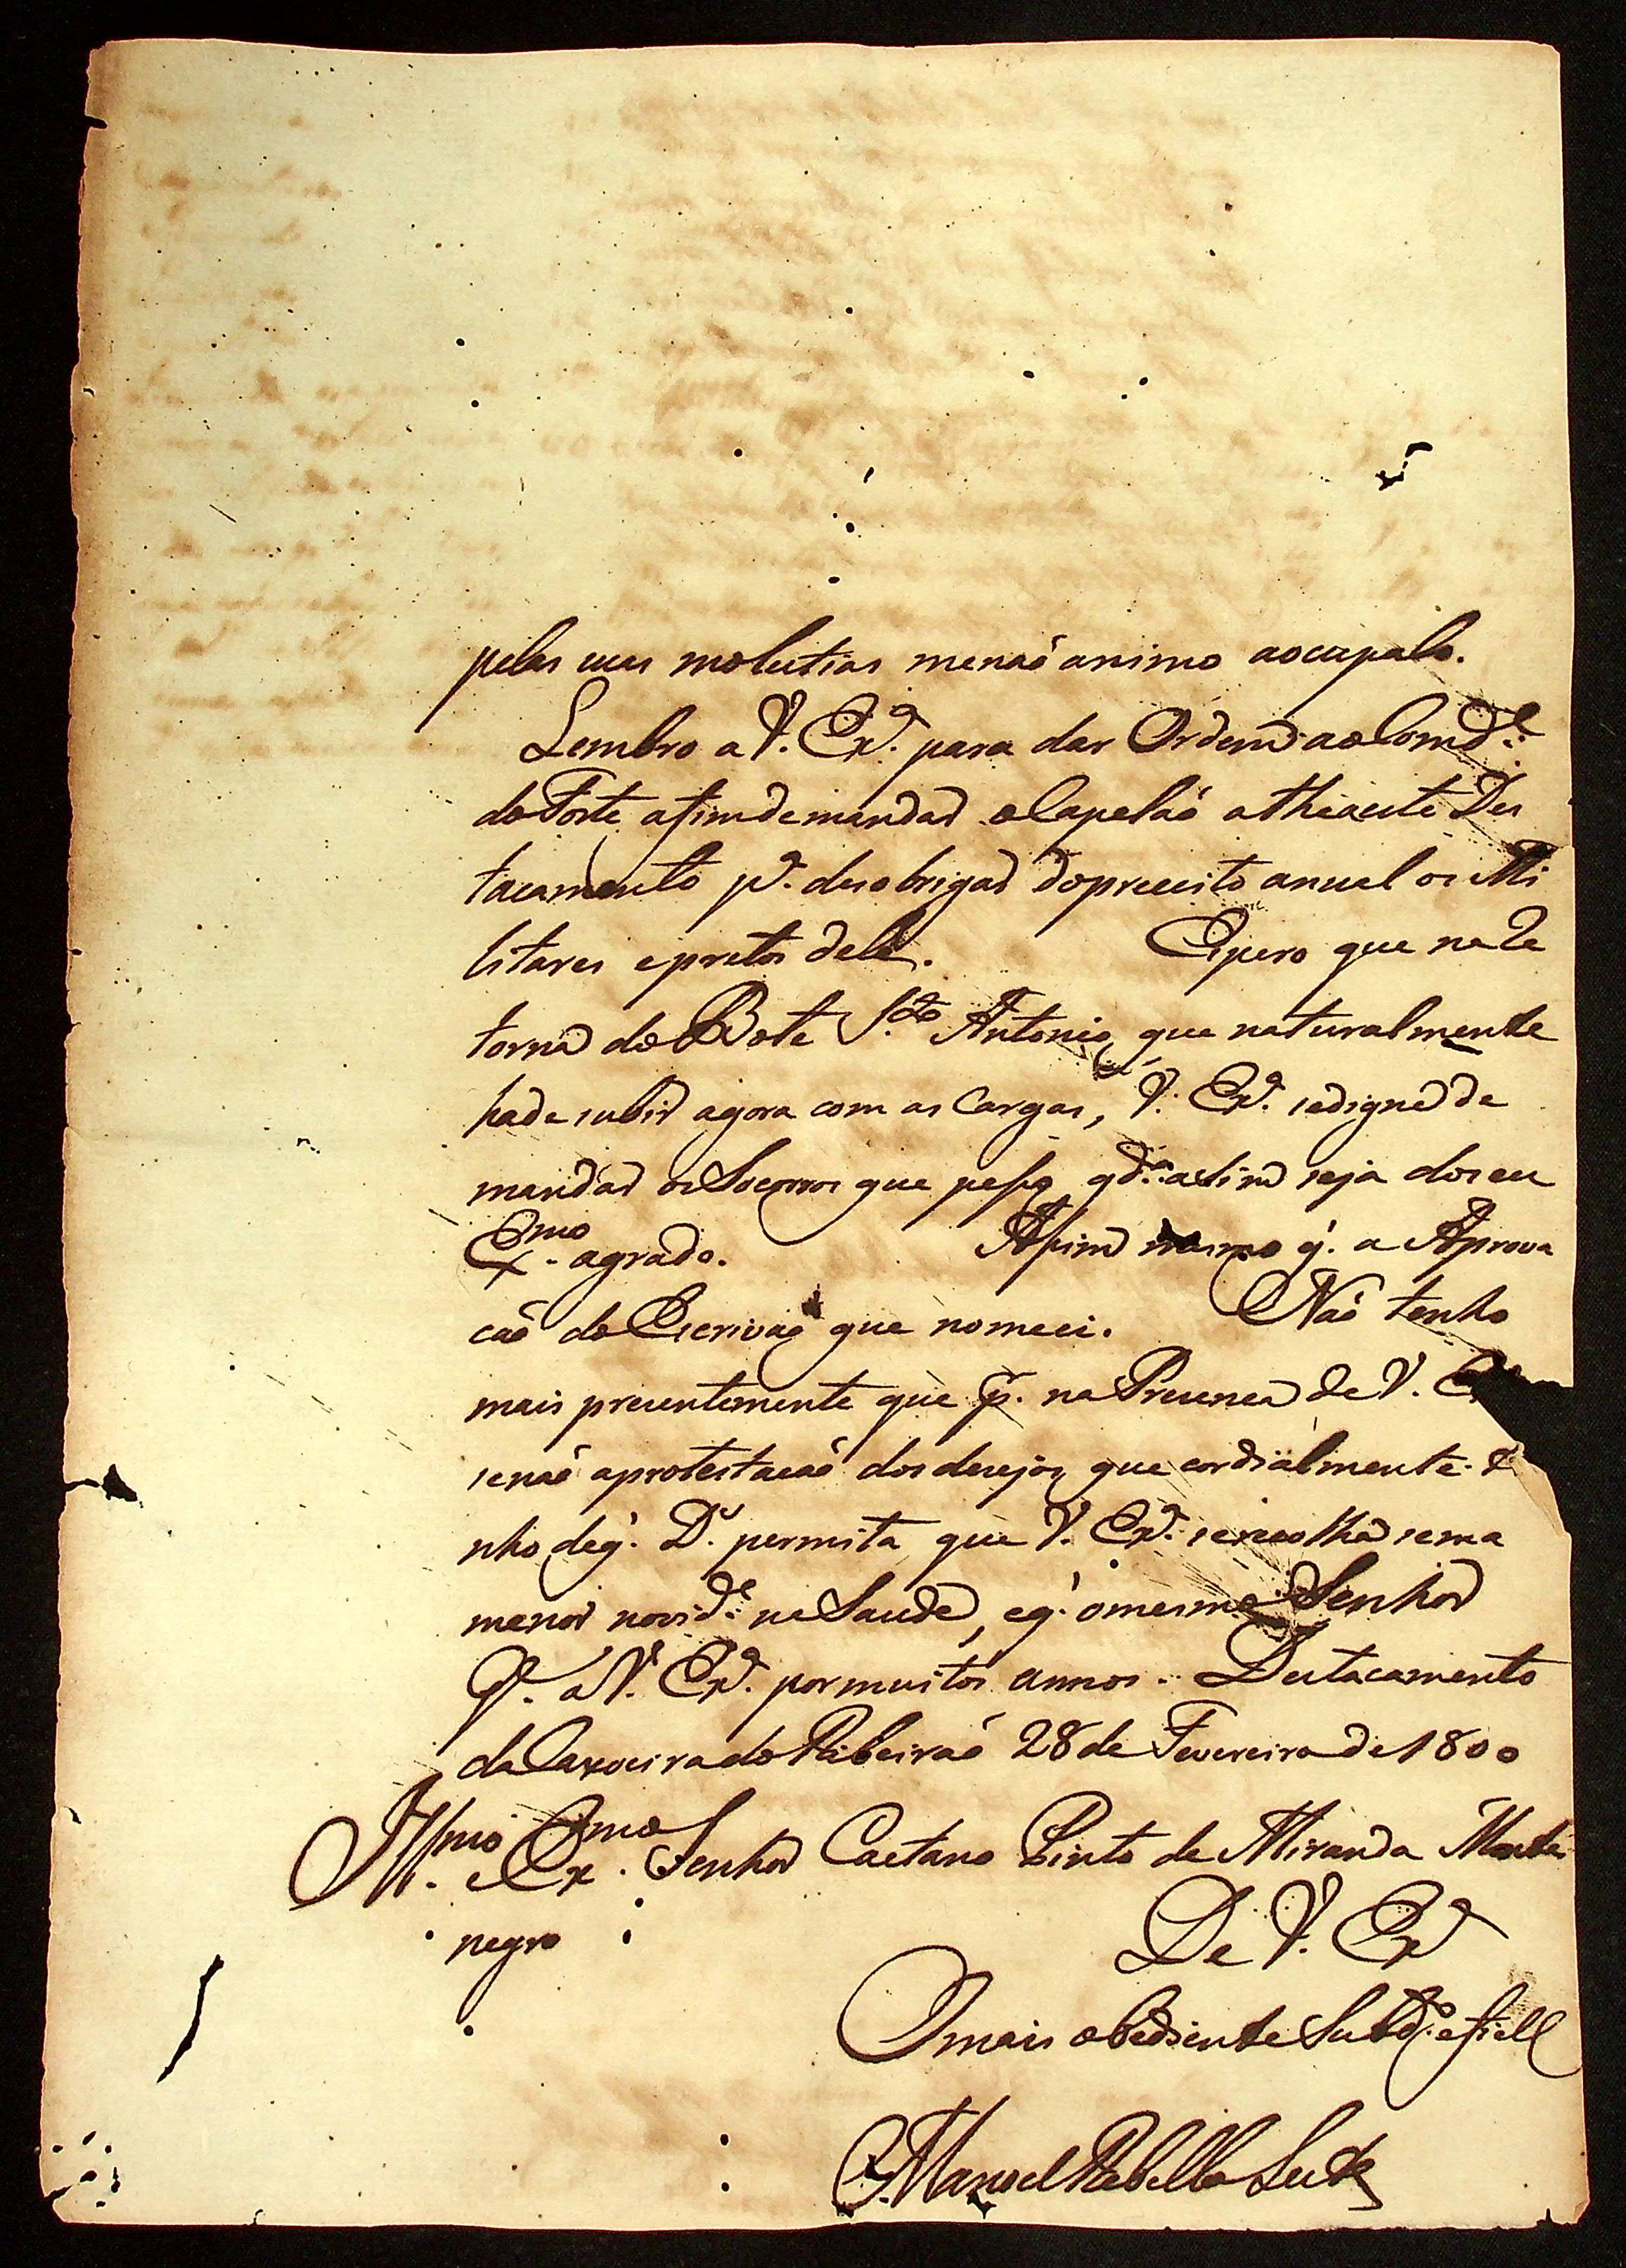 pelas suas molestias menaõ animo aocupalo.
Lembro a V. Exª. para dar Ordem ao Comd.e
do Forte afimdemandar o Capelaõ athe a este Des
tacamento pª. desobrigar do preceito anual os Mi
litares e pretos dele. Espero que na Re
torna do Bote S.to Antonio, que naturalmente
hade subir agora com as Cargas, V. Exª. sedigne de
mandar os Socorros que pesso qd.º assim seja doseu
Ex.mo agrado. Assim mesmo q̃. a Aprova
caõ do Escrivaõ que nomeei. Naõ tenho
mais prezentemente que p. na Prezença de V. Ex
senaõ aprotestacaõ dos dezejos, que cordialmente te
nho deq̃. D.s permita que V. Exª. serecolha sem a
menor novid.e na Saude, eq̃. omesmo Senhor
G. a V. Exª. pormuitos annos. Destacamento
da Caxoeira do Ribeiraõ 28 de Fevereiro de 1800
Ill.mo e Ex.mo Senhor Caetano Pinto de Miranda Monte
negro
De V. Exª
O mais obediente Subd.º e fiell
Manoel Rebello Leite